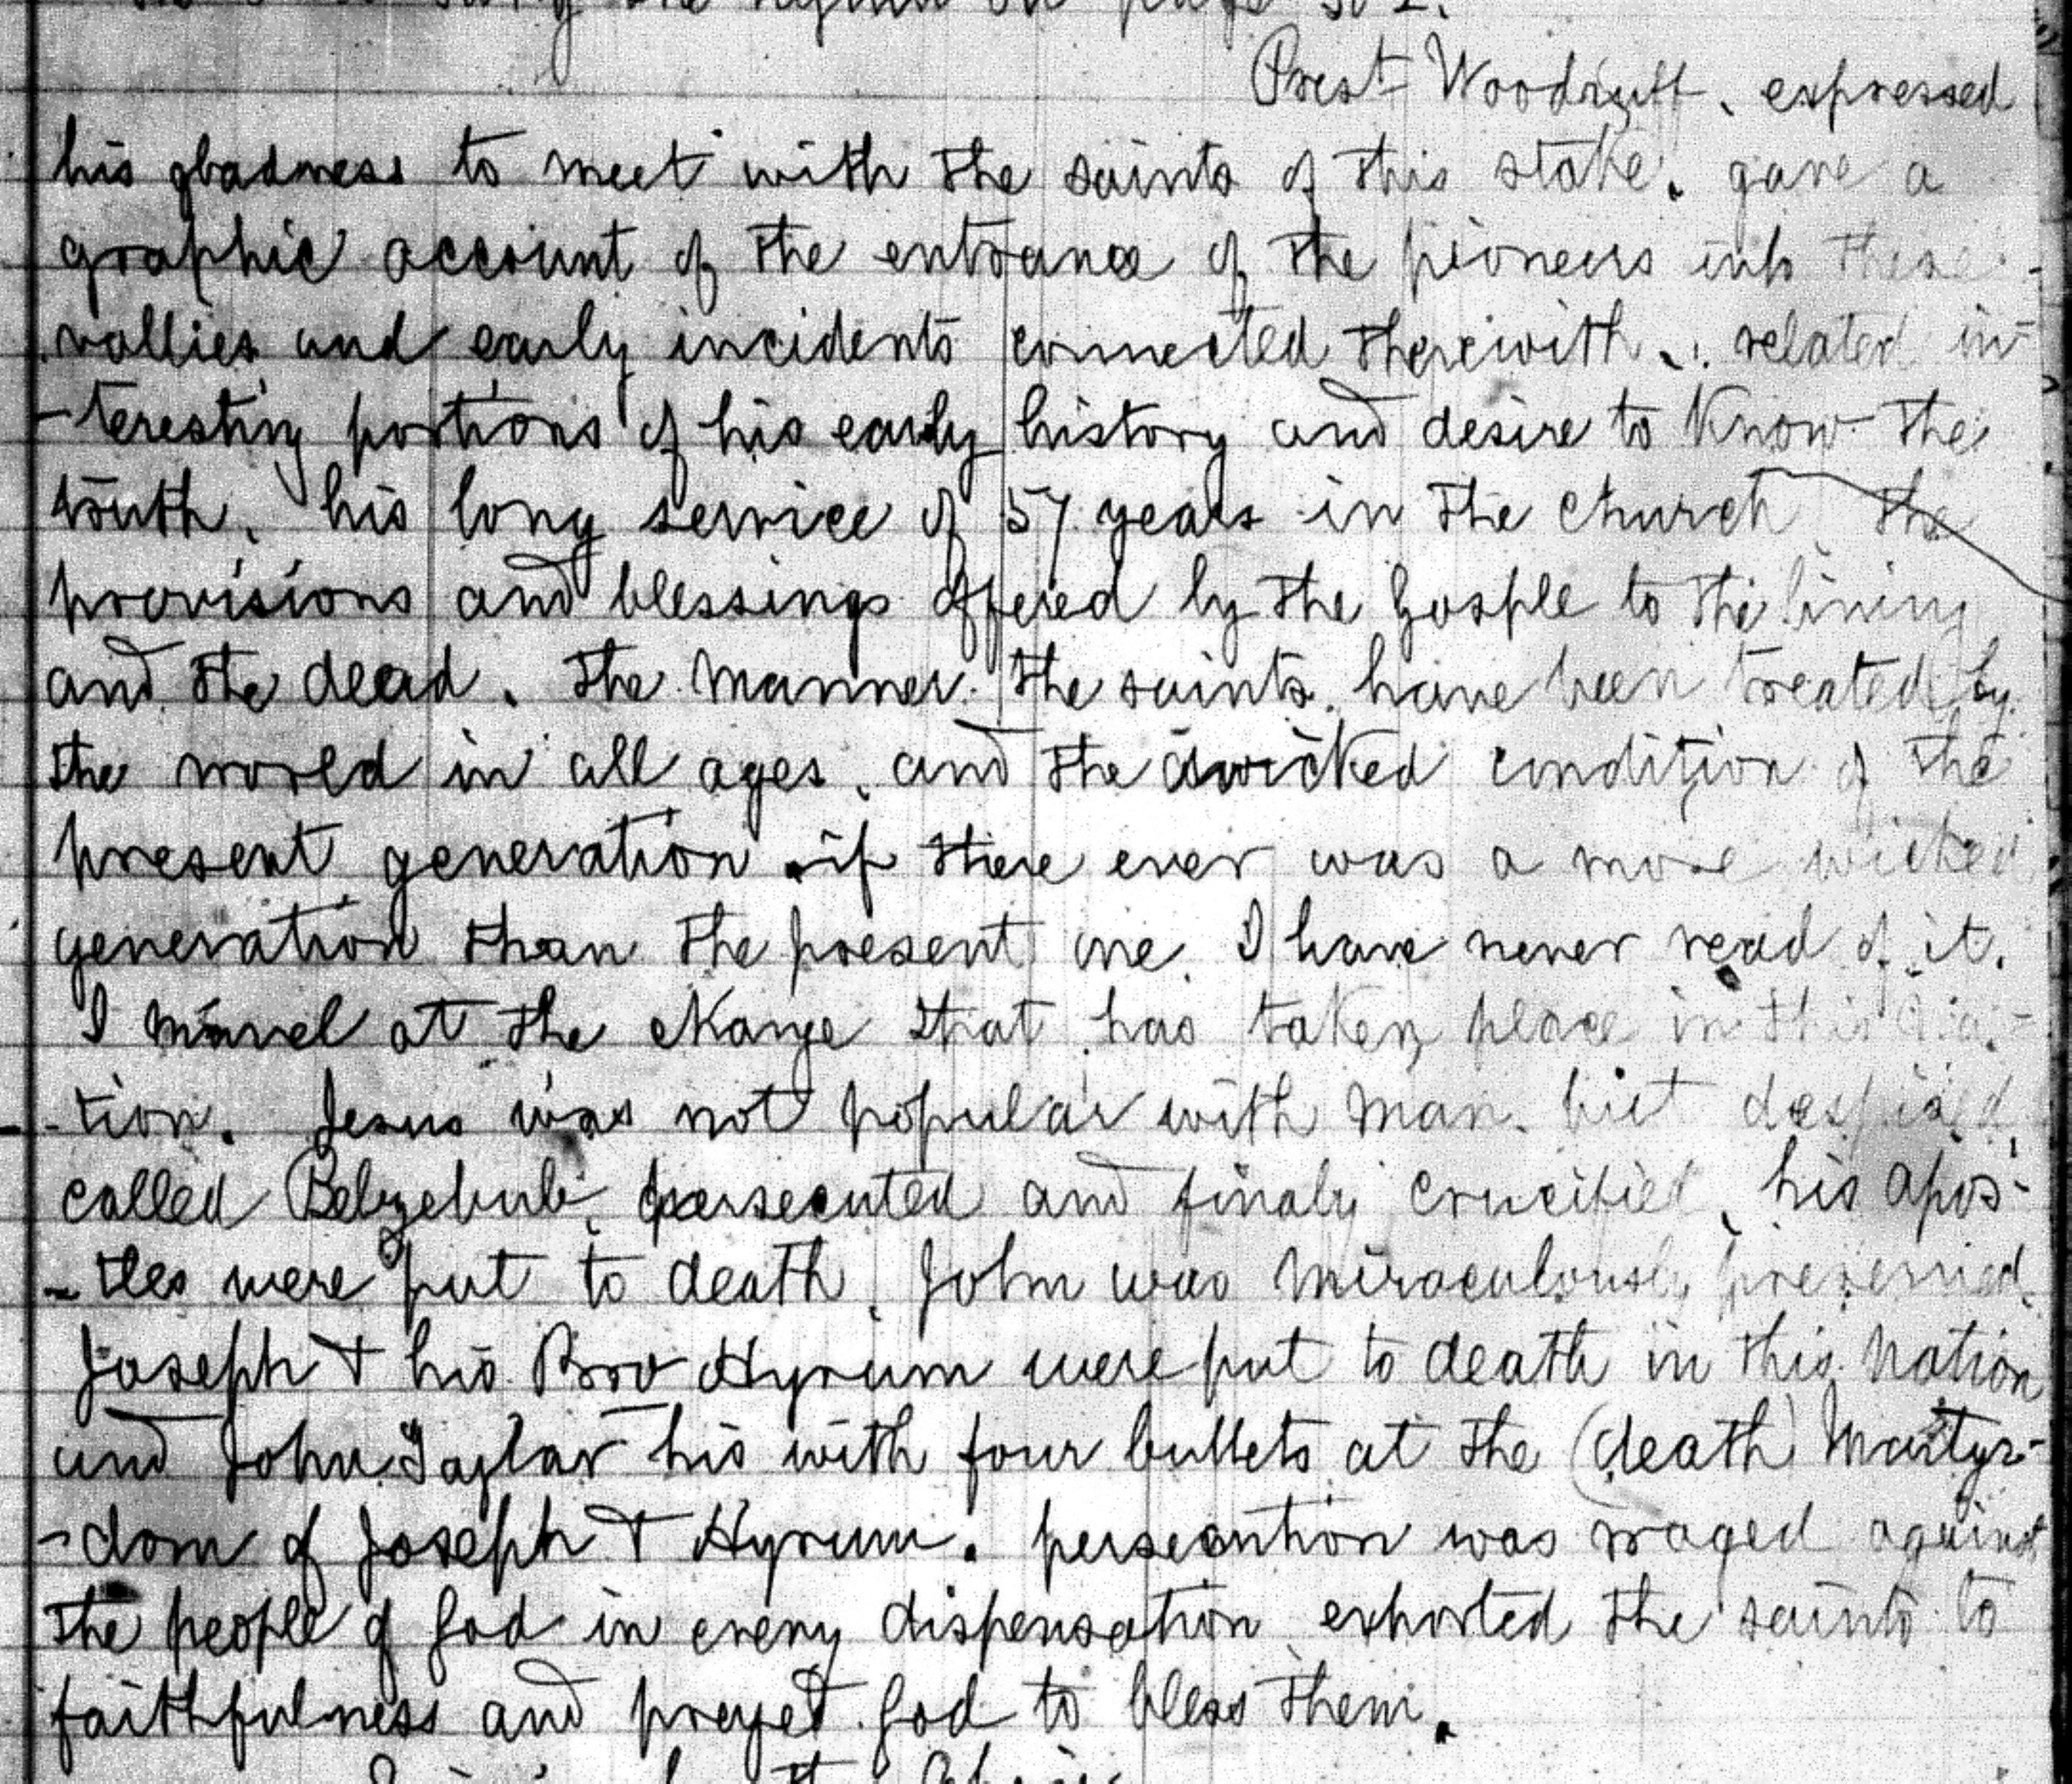 Prest Woodruff. expressed
his gladness to meet with the saints of this stake. gave a
graphic account of the entrance of the pioneers into these
vallies and early incidents connected therewith. related in-
-teresting portions of his early history and desire to Know the
truth. his long service of 57 years in the Church the
provisions and blessings offered by the Gosple to the living
and the dead. The manner the saints have been treated by
the world in all ages. and the wicked condition of the
present generation. if there ever was a more wicked
generation than the present one. I have never read of it.
I marvel at the change that has taken place in this na-
-tion. Jesus was not popular with man. but despised,
called Belzebub, persecuted and finaly crucified, his apos-
-tles were put to death. John was miraculously preserved.
Joseph & his Bro Hyrum were put to death in this Nation
and John Taylor his with four bullets at the (death) Martyr-
-dom of Joseph & Hyrum. persecution was waged against
the people of God in every dispensation exhorted the saints to
faithfulness and prayed God to bless them.